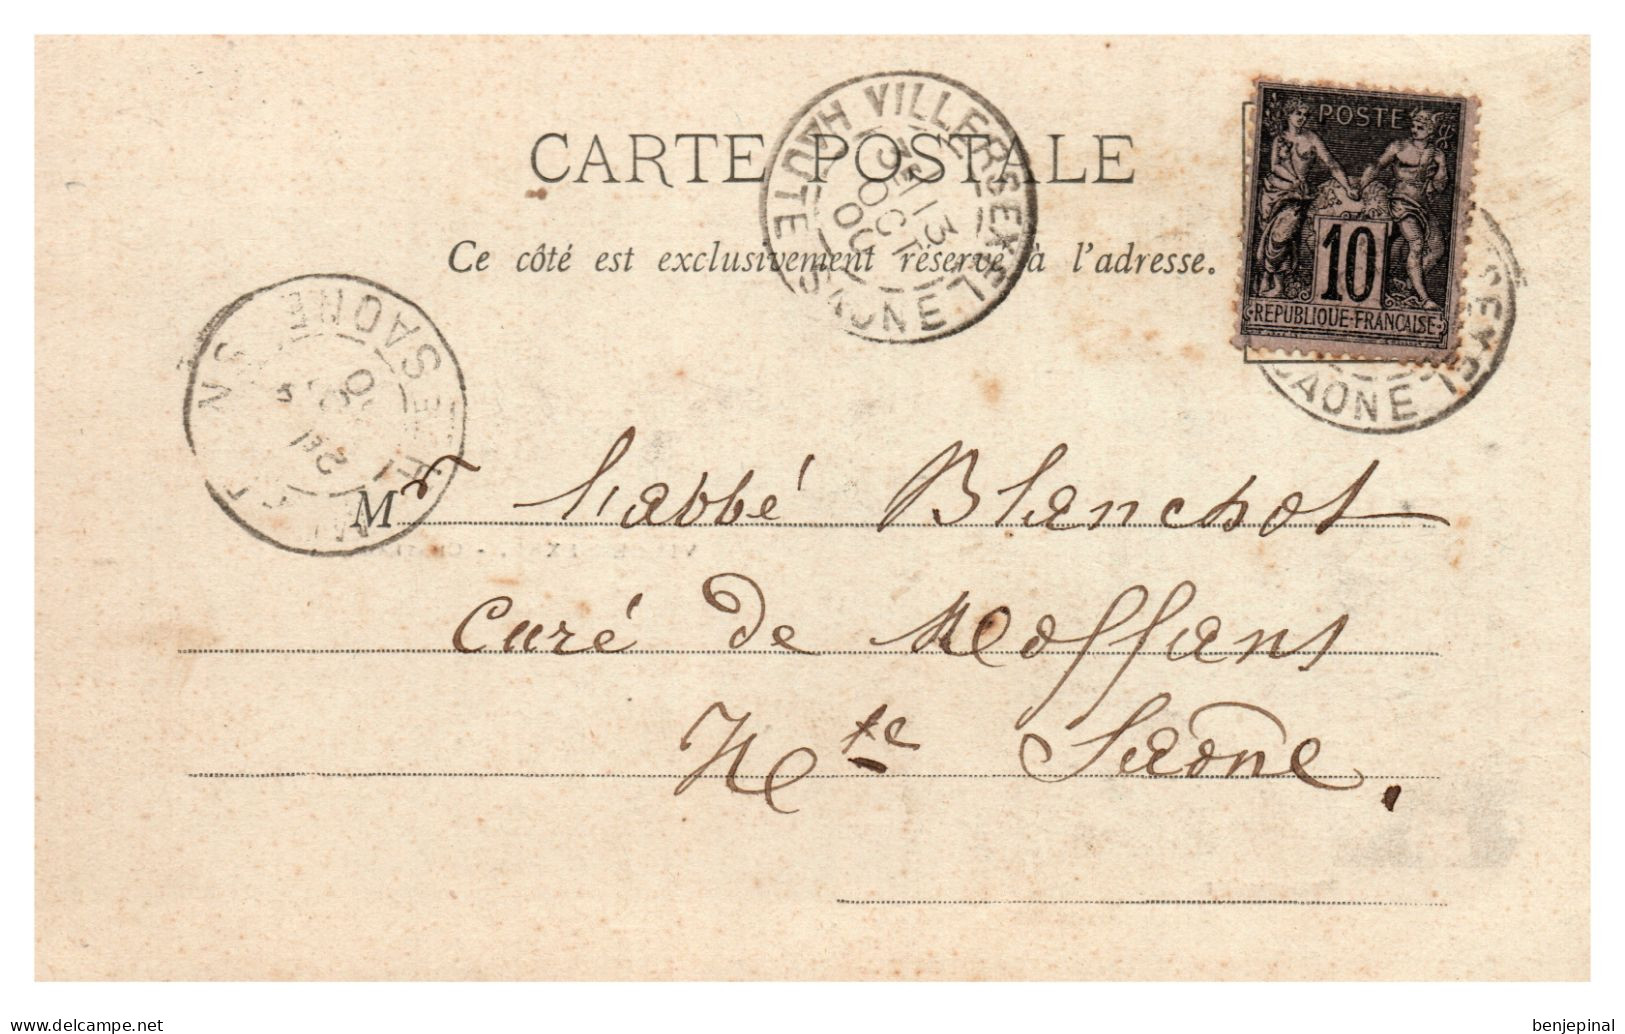 CARTE POSTALE
Ce côté est exclusivement réservé à l'adresse.
VILLERSEXEL
HAUTE SAÔNE
13
OCT
00
POSTE
10
REPUBLIQUE FRANÇAISE
SEXEL
SAONE
SAONE
Mr l'abbé Blanchot
Curé de Moffans
Hte Saône.
www.delcampe.net
benjepinal